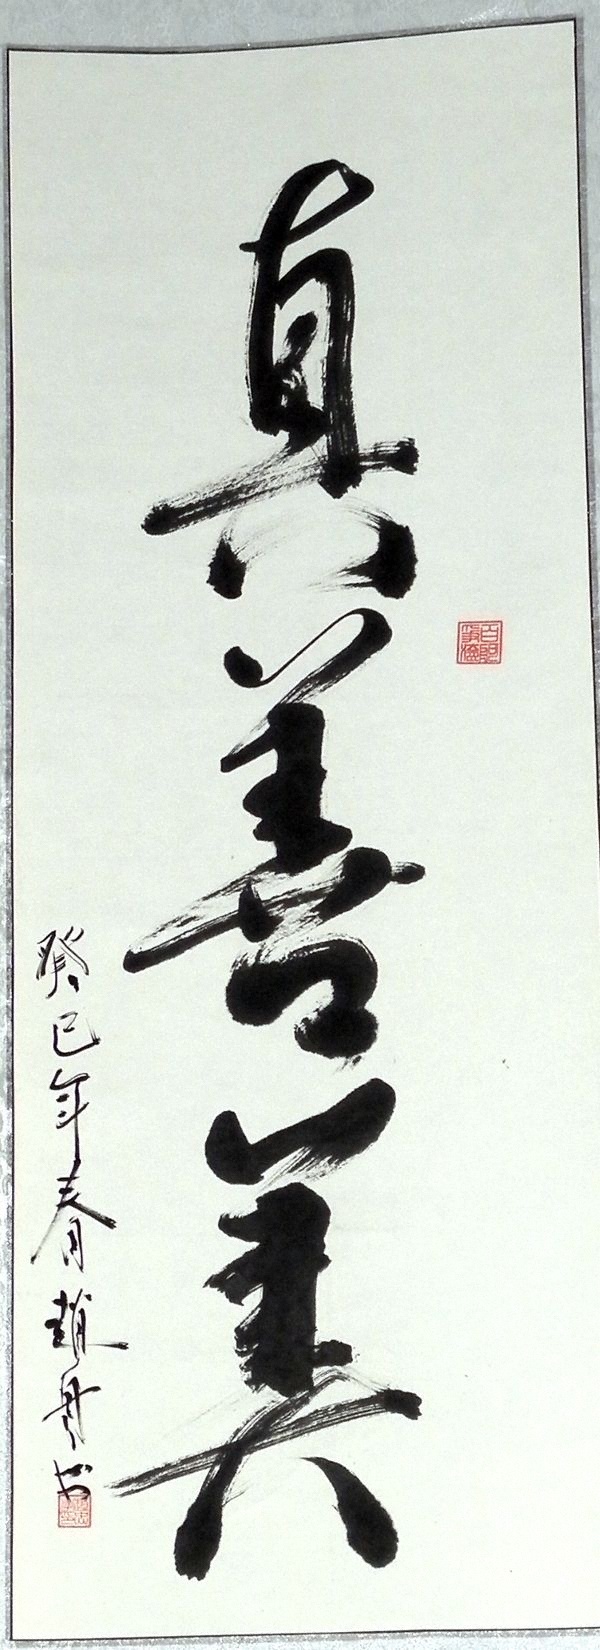 真善美
癸巳年春趙丹书